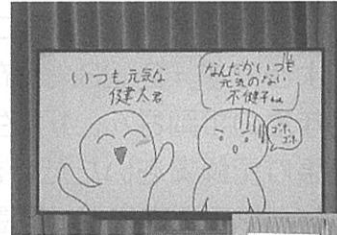 いつも元気な
健太君
なんだかいつも
元気のない
不健子さん
ゴホ、
ゴホ